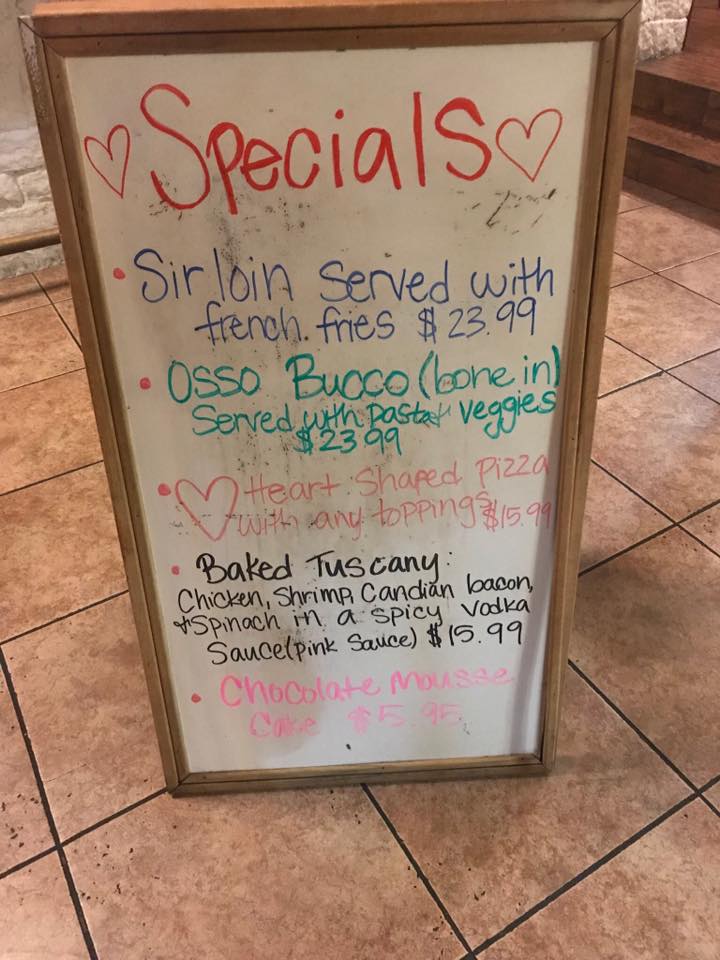 Specials
• Sirloin Served with
french fries $23.99
• Osso Bucco (bone in)
Served with Pasta + veggies
$23.99
• Heart Shaped Pizza
with any toppings $15.99
• Baked Tuscany:
Chicken, Shrimp, Candian bacon,
+ Spinach in a spicy vodka
Sauce (pink Sauce) $15.99
• Chocolate Mousse
Cake $5.95